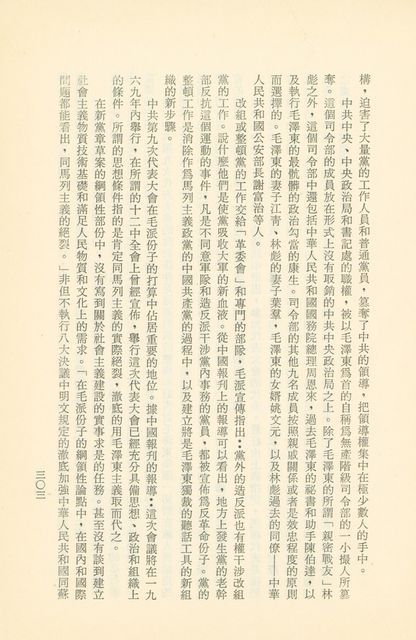 構，迫害了大量黨的工作人員和普通黨員，篡奪了中共的領導，把領導權集中在極少數人的手中。
中共中央、中央政治局和書記處的職權，被以毛澤東爲首的自稱爲無產階級司令部的一小撮人所篡
奪。這個司令部的成員放在形式上沒有取銷的中共中央政治局之上。除了毛澤東的所謂「親密戰友」林
彪之外，這個司令部中還包括中華人民共和國國務院總理周恩來，過去毛澤東的祕書和助手陳伯達，以
及執行毛澤東的最骯髒的政治勾當的康生。司令部的其他九名成員按照親戚關係或者是效忠程度的原則
而選擇的。毛澤東的妻子江靑、林彪的妻子葉羣，毛澤東的女婿姚文元，以及林彪過去的同僚——中華
人民共和國公安部長謝富治等人。
改組或整頓黨的工作交給「革委會」和專門的部隊，毛派宣傳指出：黨外的造反派也有權干涉改組
黨的工作。說什麼他們是使黨吸收大軍的新血液。從中國報刊上的報導可以看出，地方上發生黨的老幹
部反抗這個運動的事件，凡是不同意軍隊和造反派干涉黨內事務的黨員，都被宣佈爲反革命份子。黨的
整頓工作是消除作爲馬列主義政黨的中國共產黨的過程中，以及建立將是毛澤東獨裁的聽話工具的新組
織的新步驟。
中共第九次代表大會在毛派份子的打算中佔居重要的地位。據中國報刊的報導：這次會議將在一九
六九年內舉行，在所謂的十二中全會上曾經宣佈，舉行這次代表大會已經充分具備思想、政治和組織上
的條件。所謂的思想條件指的是肯定同馬列主義的實際絕裂，澈底的用毛澤東主義取而代之。
在新黨章草案的綱領性部份中，沒有寫到關於社會主義建設的實事求是的任務。甚至沒有談到建立
社會主義物質技術基礎和滿足人民物質和文化上的需求。「在毛派份子的綱領性論點中，在國內和國際
問題都能看出，同馬列主義的絕裂。」非但不執行八大決議中明文規定的澈底加強中華人民共和國同蘇
三〇三